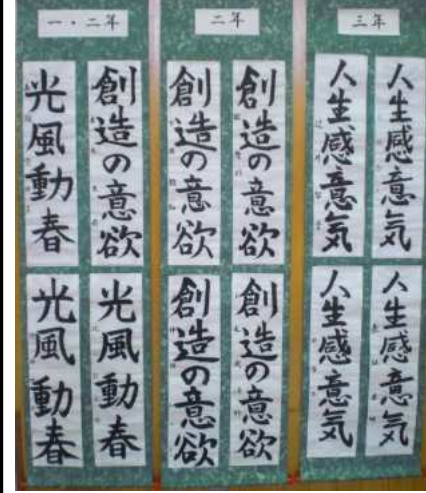 一・二年
創造の意欲
光風動春
光風動春
光風動春
二年
創造の意欲
創造の意欲
創造の意欲
創造の意欲
三年
人生感意気
人生感意気
人生感意気
人生感意気